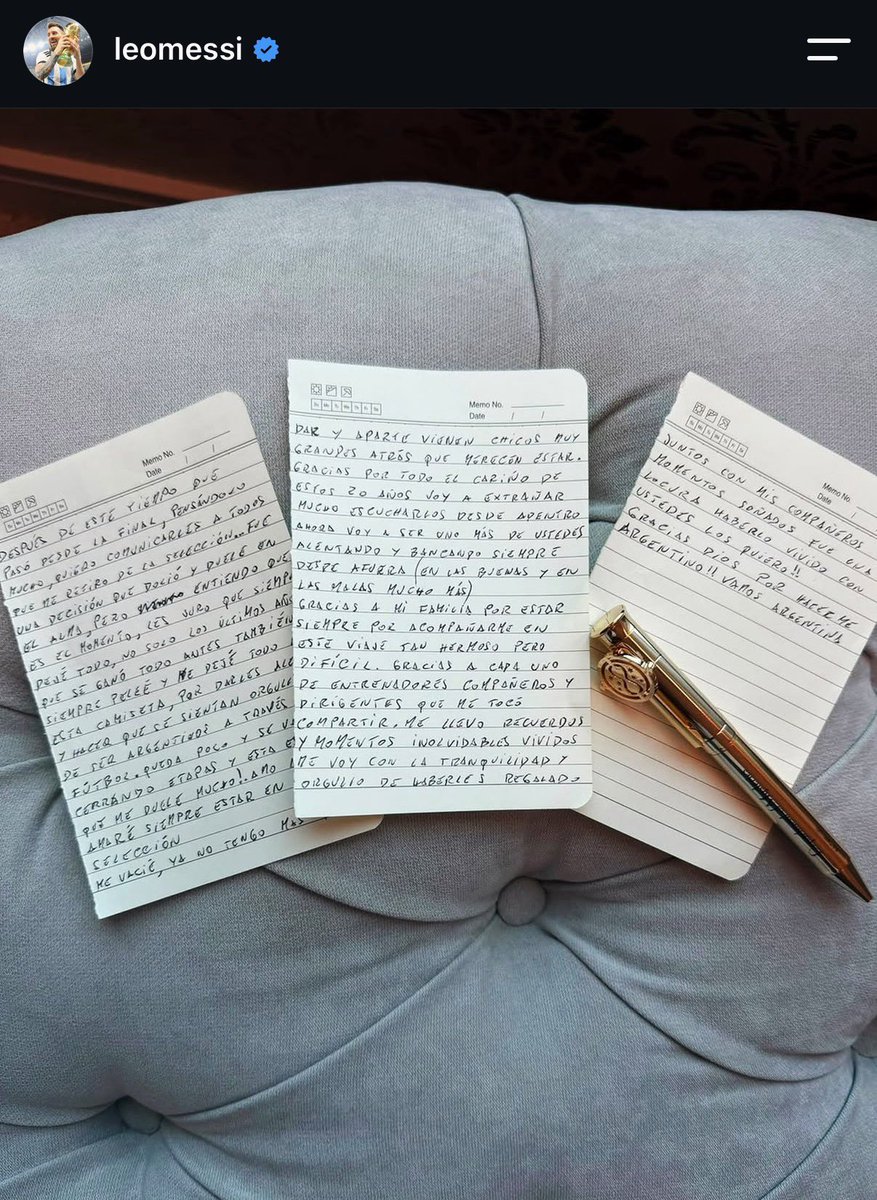 leomessi
Memo No.
Date / /
DESPUÉS DE ESTE TIEMPO QUE
PASÓ DESDE LA FINAL, PENSÁNDOLO
MUCHO, QUIERO COMUNICARLES A TODOS
QUE ME RETIRO DE LA SELECCIÓN.. FUE
UNA DECISIÓN QUE DOLIÓ Y DUELE EN
EL ALMA, PERO ENTIENDO QUE
ES EL MOMENTO, LES JURO QUE SIEMPR
DEJÉ TODO, NO SOLO LOS ÚLTIMOS AÑOS
QUE SE GANÓ TODO ANTES TAMBIÉN
SIEMPRE PELEÉ Y ME DEJÉ TODO
ESTA CAMISETA, POR DARLES ALE
Y HACER QUE SE SIENTAN ORGULL
DE SER ARGENTINOS A TRAVÉS
FÚTBOL. QUEDA POCO Y SE VA
CERRANDO ETAPAS Y ESTA E
QUE ME DUELE MUCHO! AMO
AMARÉ SIEMPRE ESTAR EN
SELECCIÓN
ME VACIÉ, YA NO TENGO MAS
Memo No.
Date / /
DAR Y APARTE VIENEN CHICOS MUY
GRANDES ATRÁS QUE MERECEN ESTAR.
GRACIAS POR TODO EL CARIÑO DE
ESTOS 20 AÑOS VOY A EXTRAÑAR
MUCHO ESCUCHARLOS DESDE ADENTRO
AHORA VOY A SER UNO MÁS DE USTEDES
ALENTANDO Y BANCANDO SIEMPRE
DESDE AFUERA (EN LAS BUENAS Y EN
LAS MALAS MUCHO MÁS)
GRACIAS A MI FAMILIA POR ESTAR
SIEMPRE POR ACOMPAÑARME EN
ESTE VIAJE TAN HERMOSO PERO
DIFÍCIL. GRACIAS A CADA UNO
DE ENTRENADORES COMPAÑEROS Y
DIRIGENTES QUE ME TOCÓ
COMPARTIR. ME LLEVO RECUERDOS
Y MOMENTOS INOLVIDABLES VIVIDOS
ME VOY CON LA TRANQUILIDAD Y
ORGULLO DE HABERLES REGALADO
Memo No.
Date /
JUNTOS CON MIS COMPAÑEROS
MOMENTOS SOÑADOS FUE UNA
LOCURA HABERLO VIVIDO CON
USTEDES LOS QUIERO!!
GRACIAS DIOS POR HACERME
ARGENTINO!! VAMOS ARGENTINA